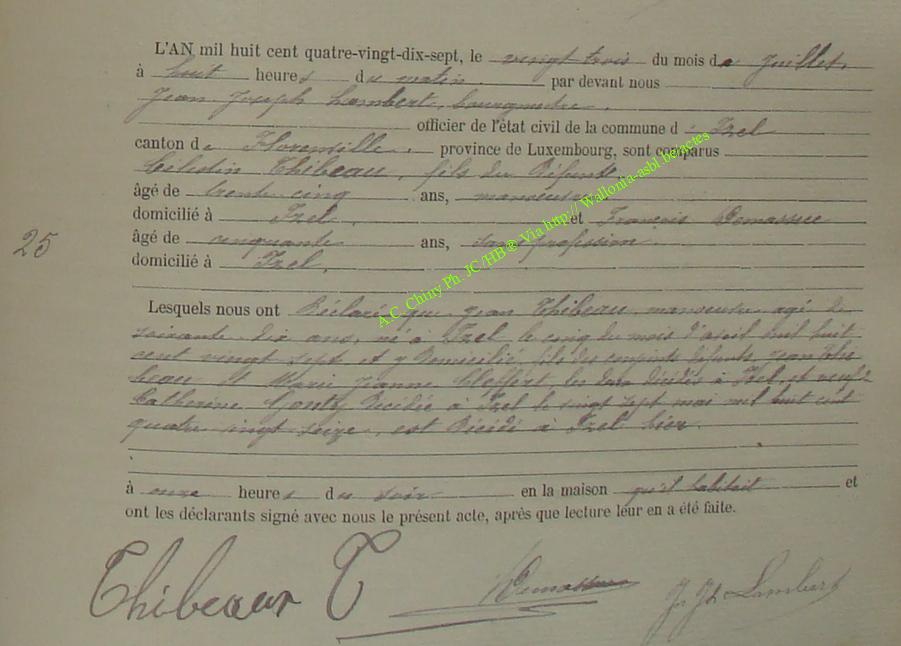 L'AN mil huit cent quatre-vingt-dix-sept, le vingt trois du mois de Juillet,
à huit heures du matin par devant nous
Jean Joseph Lambert, bourgmestre,
officier de l'état civil de la commune d'Izel
canton de Florenville, province de Luxembourg, sont comparus
Célestin Thibeau, fils du Défunt,
âgé de trente cinq ans, manoeuvre
domicilié à Izel, et François Demassue
âgé de cinquante ans, sans profession
domicilié à Izel,
25
Lesquels nous ont Déclaré que Jean Thibeau, manoeuvre, agé de
soixante dix ans, né à Izel le cinq du mois d'avril mil huit
cent vingt sept et y Domicilié, fils des conjoints défunts Jean Thi
beau et Marie Jeanne les deux décédés à Izel, et veuf de
Catherine Gonty Décédée à Izel le vingt sept mai mil huit cent
quatre vingt seize, est Décédé à Izel hier.
à onze heures du soir en la maison qu'il habitait et
ont les déclarants signé avec nous le présent acte, après que lecture leur en a été faite.
Thibeau C Demassue J. Jh. Lambert
A.C. Chiny Ph. JC /HB® Via http:// Wallonia-asbl.be/actes